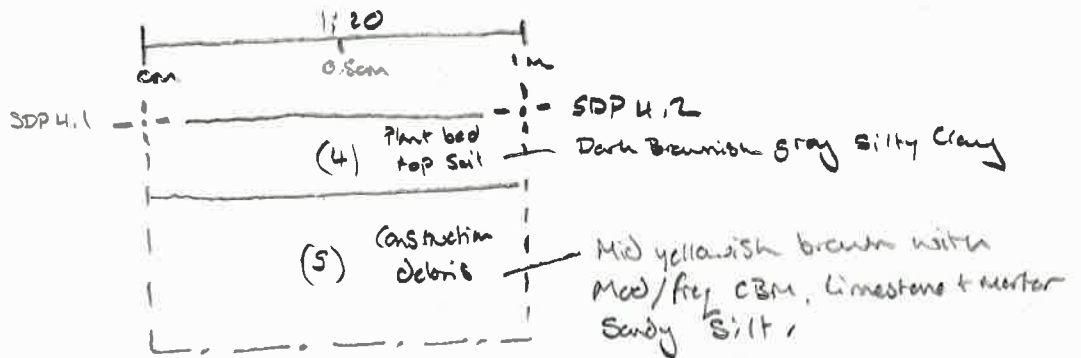 1:20
0m
0.5cm
1m
SDP 4.1
SDP 4.2
(4) Plant bed
top Soil
Dark Brownish gray Silty Clay
(5) Construction
debris
Mid yellowish brown with
Mod/freq CBM, limestone + mortar
Sandy Silt,